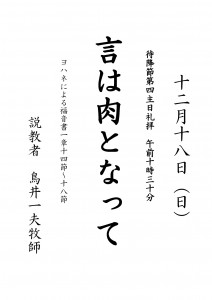 十二月十八日（日）
待降節第四主日礼拝　午前十時三十分
言は肉となって
ヨハネによる福音書一章十四節～十八節
説教者　鳥井一夫牧師